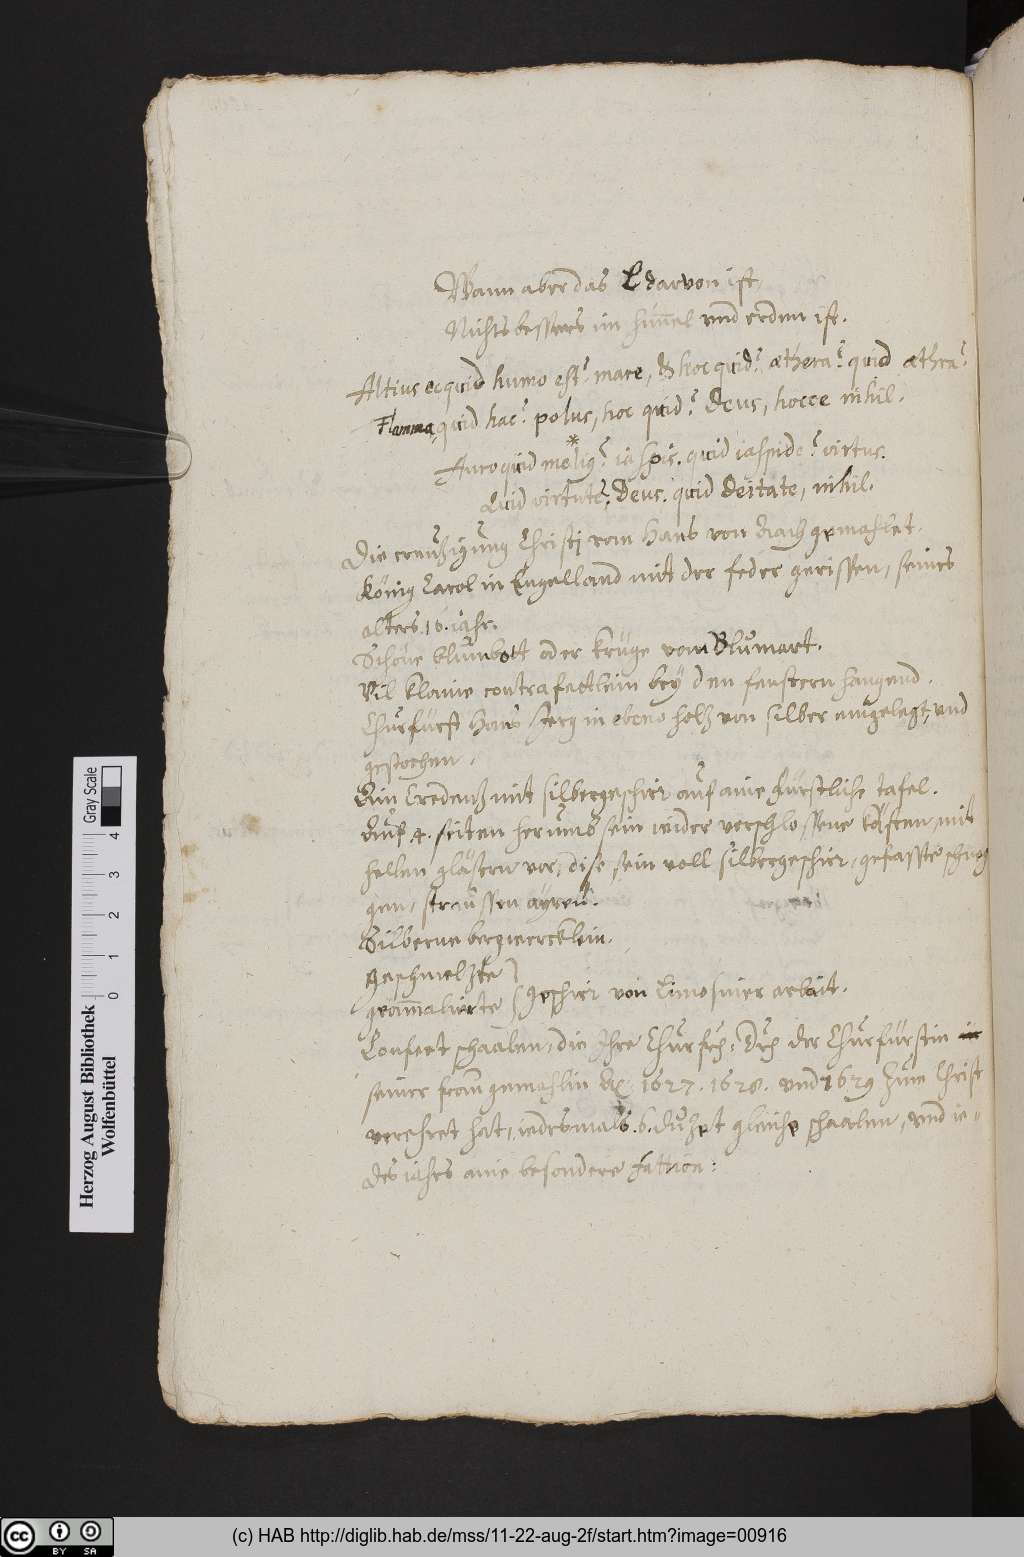 Wann aber das L darvon ist,
Nichts bessers im him̄el vnd erden ist.
Altius ecquid humo est? mare, & hoc quid? æthera? quid æthra?
Flamma, quid hac? polus, hoc quid? Deus, hocce nihil.
*
Auro quid meliꝰ? iaspis. quid iaspide? virtus.
Quid virtute? Deus. quid deitate, nihil.
Die creuhigung Christj vom Hans von Aach gemahlet.
König Carol in Engelland mit der feder gerissen, seines
alters .16. iahr.
Schöne blumbott oder krüge vom Blumart.
Vil klaine contrafettlein beÿ den fenstern hangend.
Churfürst Hans Jerg in ebeno holtz von silber eingelegt, vnd
gestochen.
Ein Credentz mit silbergeschirr auf aine fürstliche tafel.
Auf 4. seiten herumb sein wider verschlossene kästen, mit
hellen gläsern vor, dise sein voll silbergeschirr, gefasste schnegg
gen, straussen ayren.
Silberne bergwercklein.
Geschmeltzte
geam̄alierte } geschirr von Limosiner arbait.
Confect schaalen, die Ihre Churfr. Dhr. der Churfürstin
seiner frau gemahlin Aº. 1627. 1628. vnd 1629 zum Christ
verehret hat, iedesmals .6. duzet gleiche schaalen, vnd ie-
des iahrs aine besondere fattion:
Herzog August Bibliothek
Wolfenbüttel
0 1 2 3 4
Gray Scale
cc BY SA
(c) HAB http://diglib.hab.de/mss/11-22-aug-2f/start.htm?image=00916